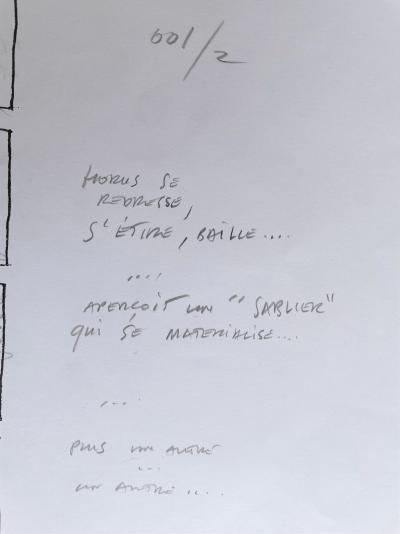 001/2
HORUS SE
REDRESSE,
S'ÉTIRE, BAILLE....
....
APERÇOIT UN "SABLIER"
QUI SE MATERIALISE....
....
PUIS UN AUTRE
...
UN AUTRE....